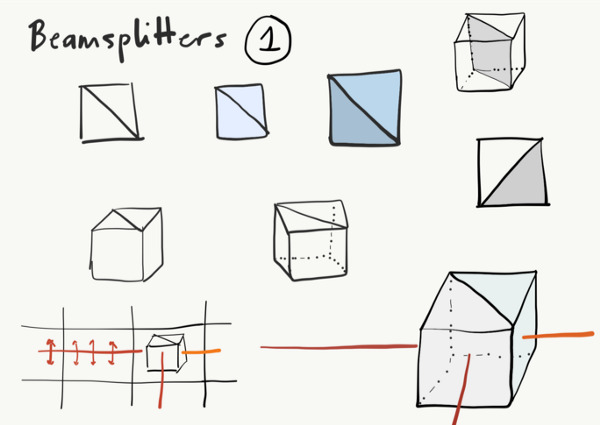 Beamsplitters 1